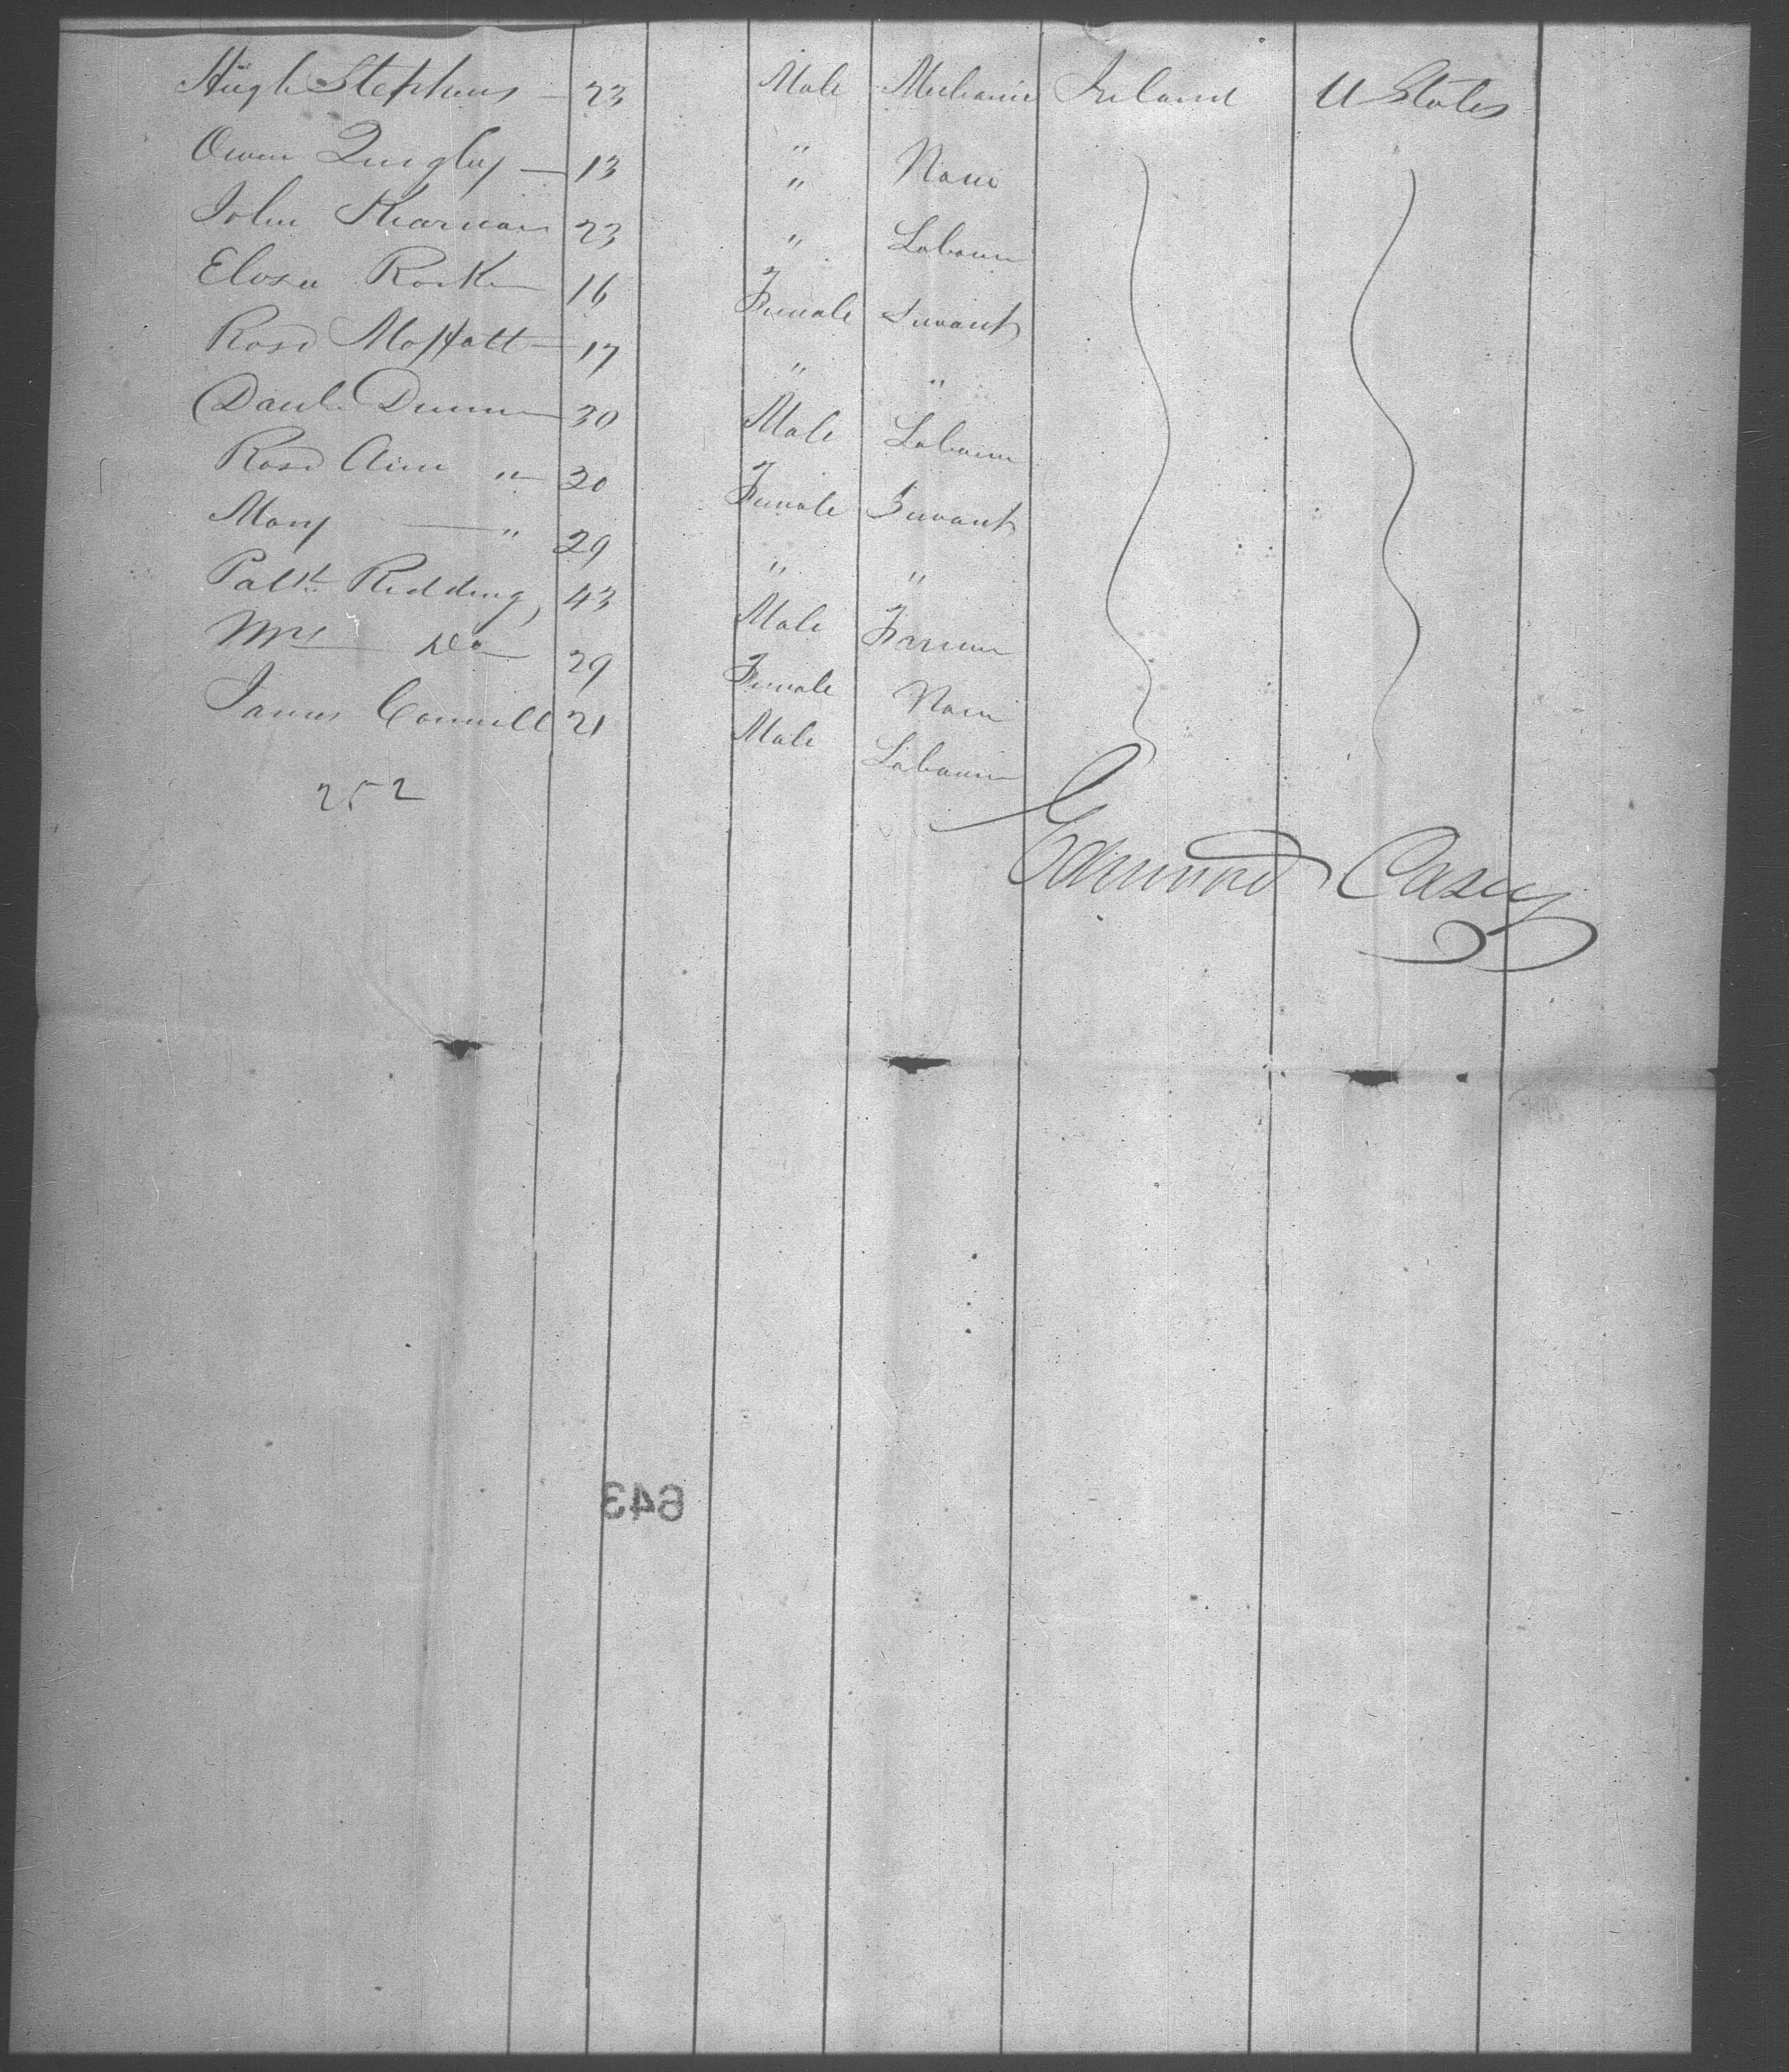 Hugh Stephens — 23 Male Mechanic Ireland U States
Owen Quigley — 13 " None
John Kearnan 23 " Labourer
Eliza Rorke 16 Female Servant
Rose Moffatt — 17 " "
Danl. Dunn — 30 Male Labourer
Rose Ann " 20 Female Servant
Mary — " 29 " "
Patk. Redding, 43 Male Farmer
Mrs Do 29 Female None
James Connell 21 Male Labourer
252
Edmund Casey
643